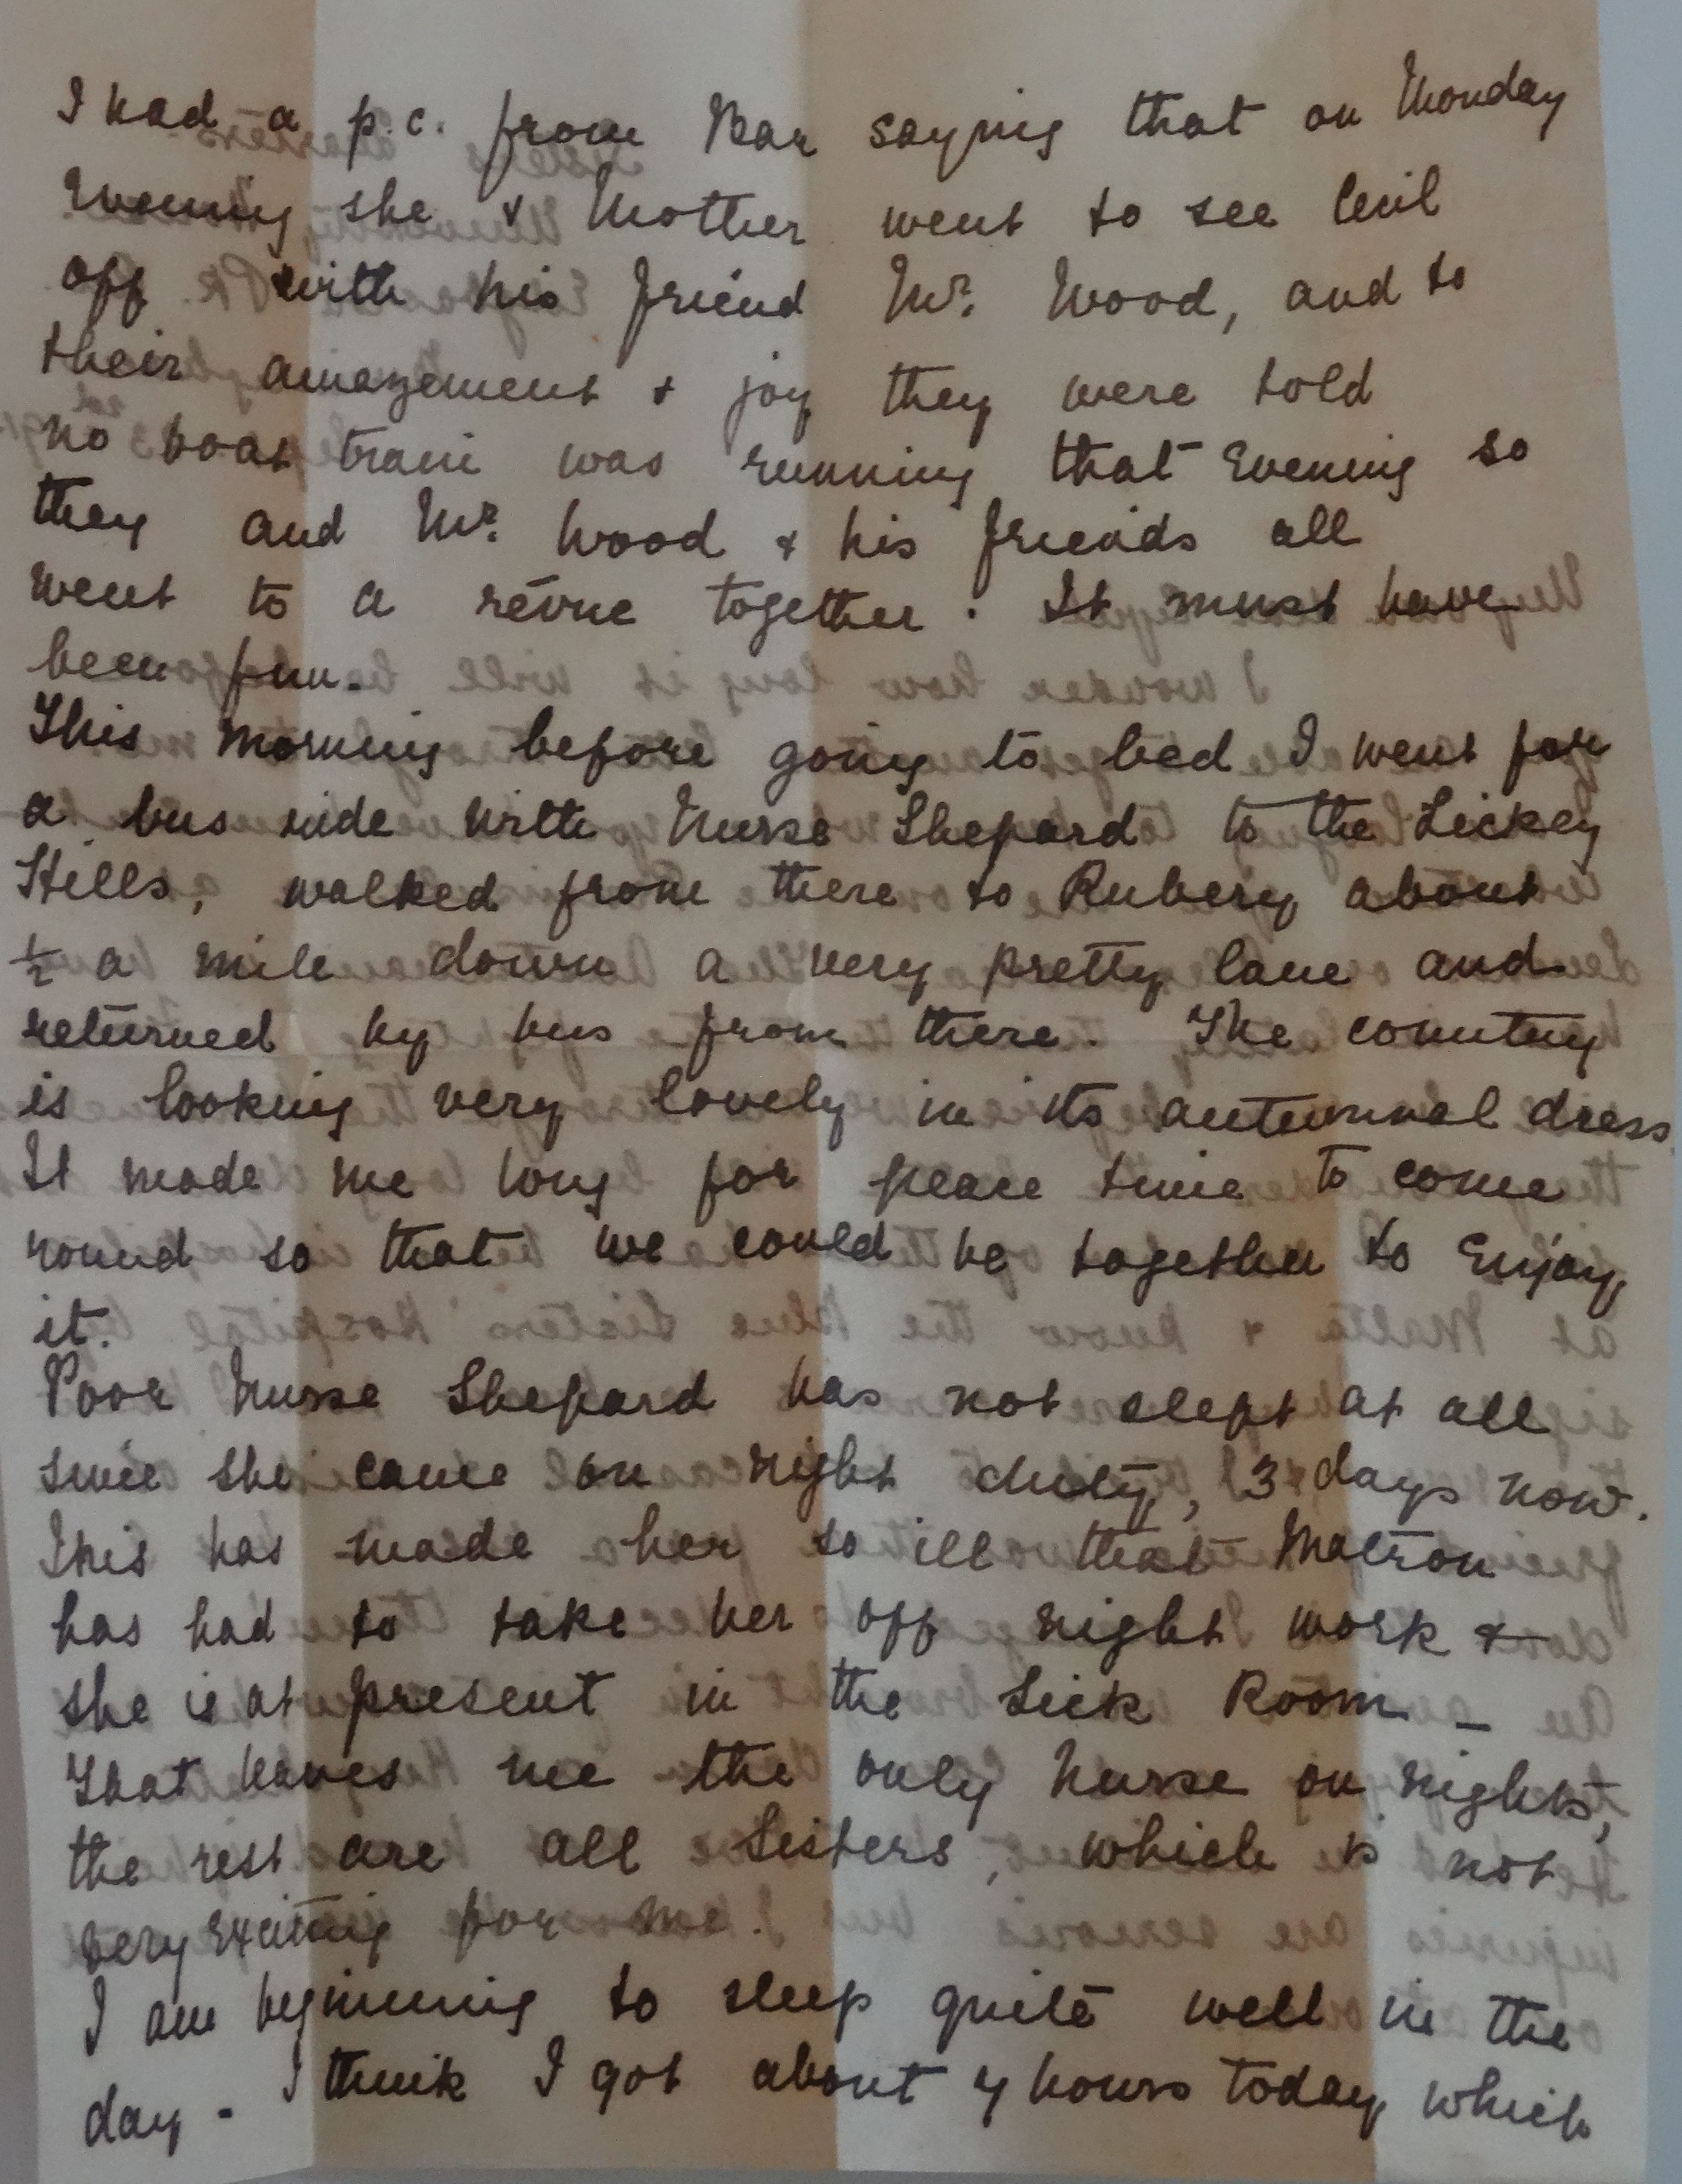 I had a p.c. from Bar saying that on Monday
Evening she & Mother went to see Cecil
off with his friend Mr. Wood, and to
their amazement & joy they were told
no boat train was running that Evening so
they and Mr. Wood & his friends all
went to a révue together. It must have
been fun.
This morning before going to bed I went for
a bus ride with Nurse Shepard to the Lickey
Hills, walked from there to Rubery about
½ a mile down a very pretty lane and
returned by bus from there. The country
is looking very lovely in its autumnal dress.
It made me long for peace time to come
round so that we could be together to Enjoy
it.
Poor Nurse Shepard has not slept at all
since she came on night duty, 3 days now.
This has made her so ill that Matron
has had to take her off night work &
she is at present in the Sick Room _
That leaves me the only Nurse on nights,
the rest are all Sisters, which is not
very Exciting for me.
I am beginning to sleep quite well in the
day - I think I got about 7 hours today which